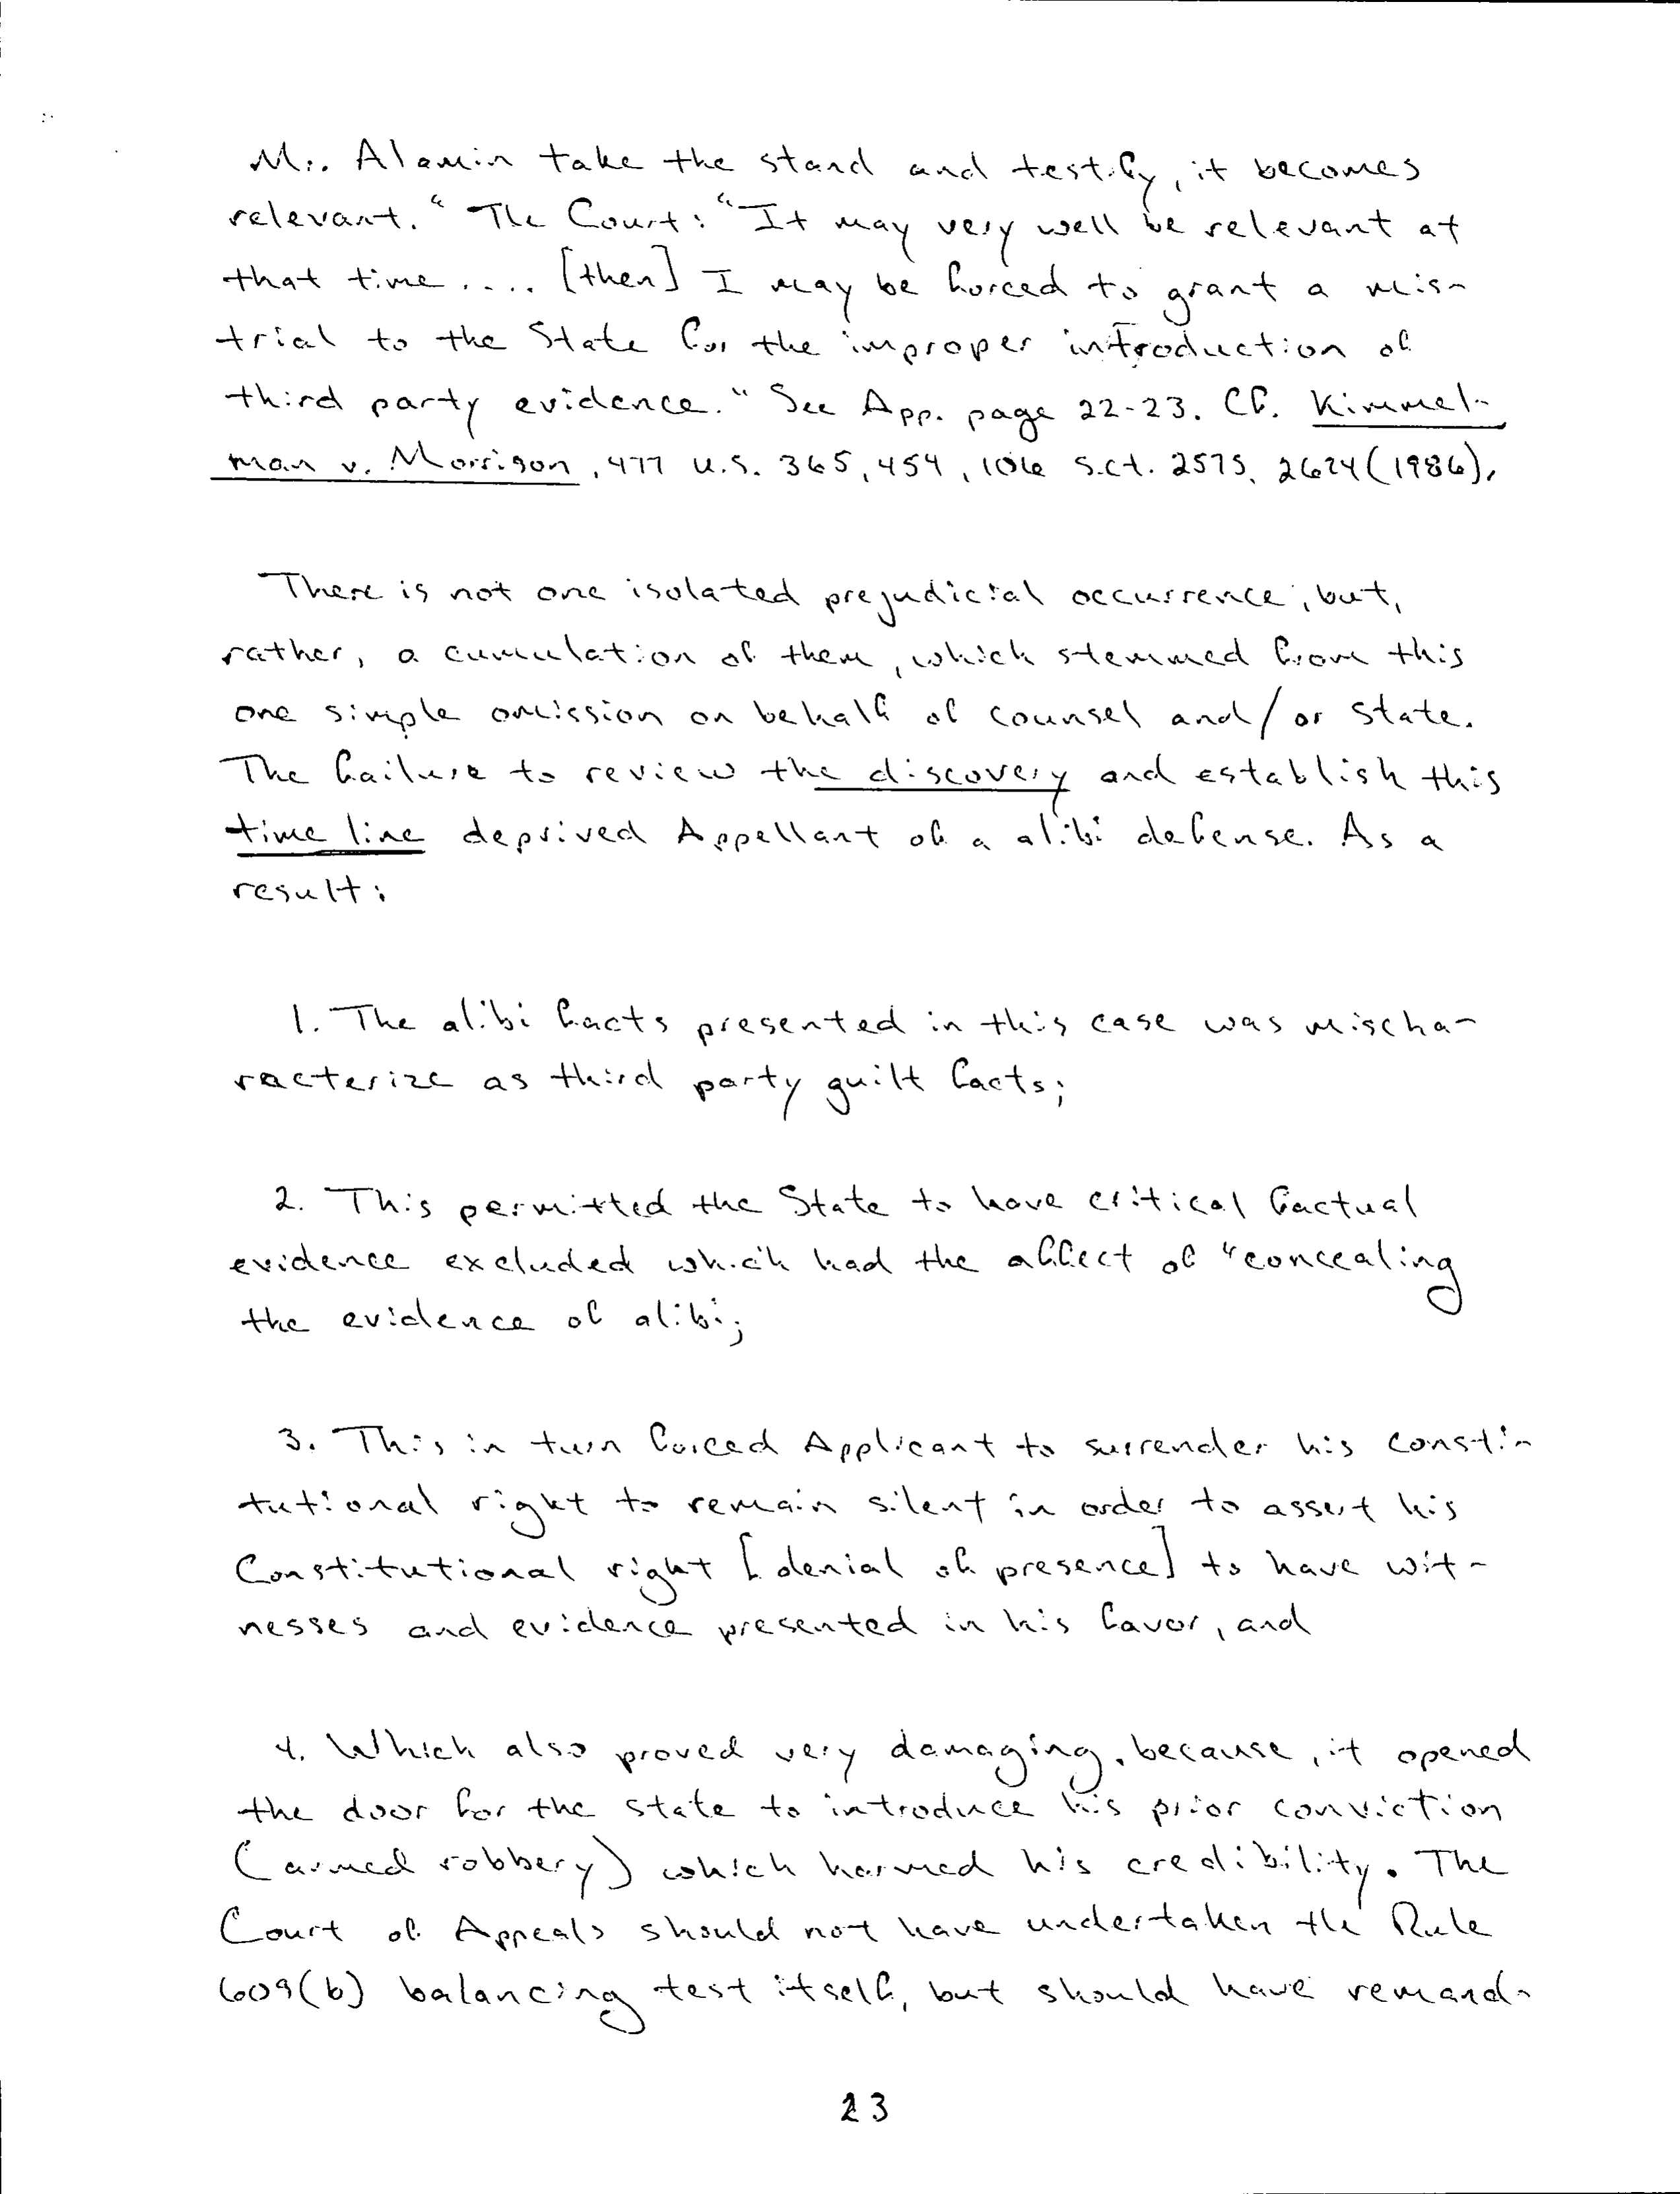 Mr. Alamin take the stand and testify, it becomes
relevant." The Court: "It may very well be relevant at
that time.... [then] I may be forced to grant a mis-
trial to the State for the improper introduction of
third party evidence." See App. page 22-23. Cf. Kimmel-
man v. Morrison, 477 U.S. 365, 454, 106 S.Ct. 2575, 2624 (1986),
There is not one isolated prejudicial occurrence, but,
rather, a cumulation of them, which stemmed from this
one simple omission on behalf of counsel and/or State.
The failure to review the discovery and establish this
time line deprived Appellant of a alibi defense. As a
result:
1. The alibi facts presented in this case was mischa-
racterize as third party guilt facts;
2. This permitted the State to have critical factual
evidence excluded which had the affect of "concealing
the evidence of alibi;
3. This in turn forced Applicant to surrender his consti-
tutional right to remain silent in order to assert his
Constitutional right [denial of presence] to have wit-
nesses and evidence presented in his favor, and
4. Which also proved very damaging, because, it opened
the door for the state to introduce his prior conviction
(armed robbery) which harmed his credibility. The
Court of Appeals should not have undertaken the Rule
609(b) balancing test itself, but should have remand-
23